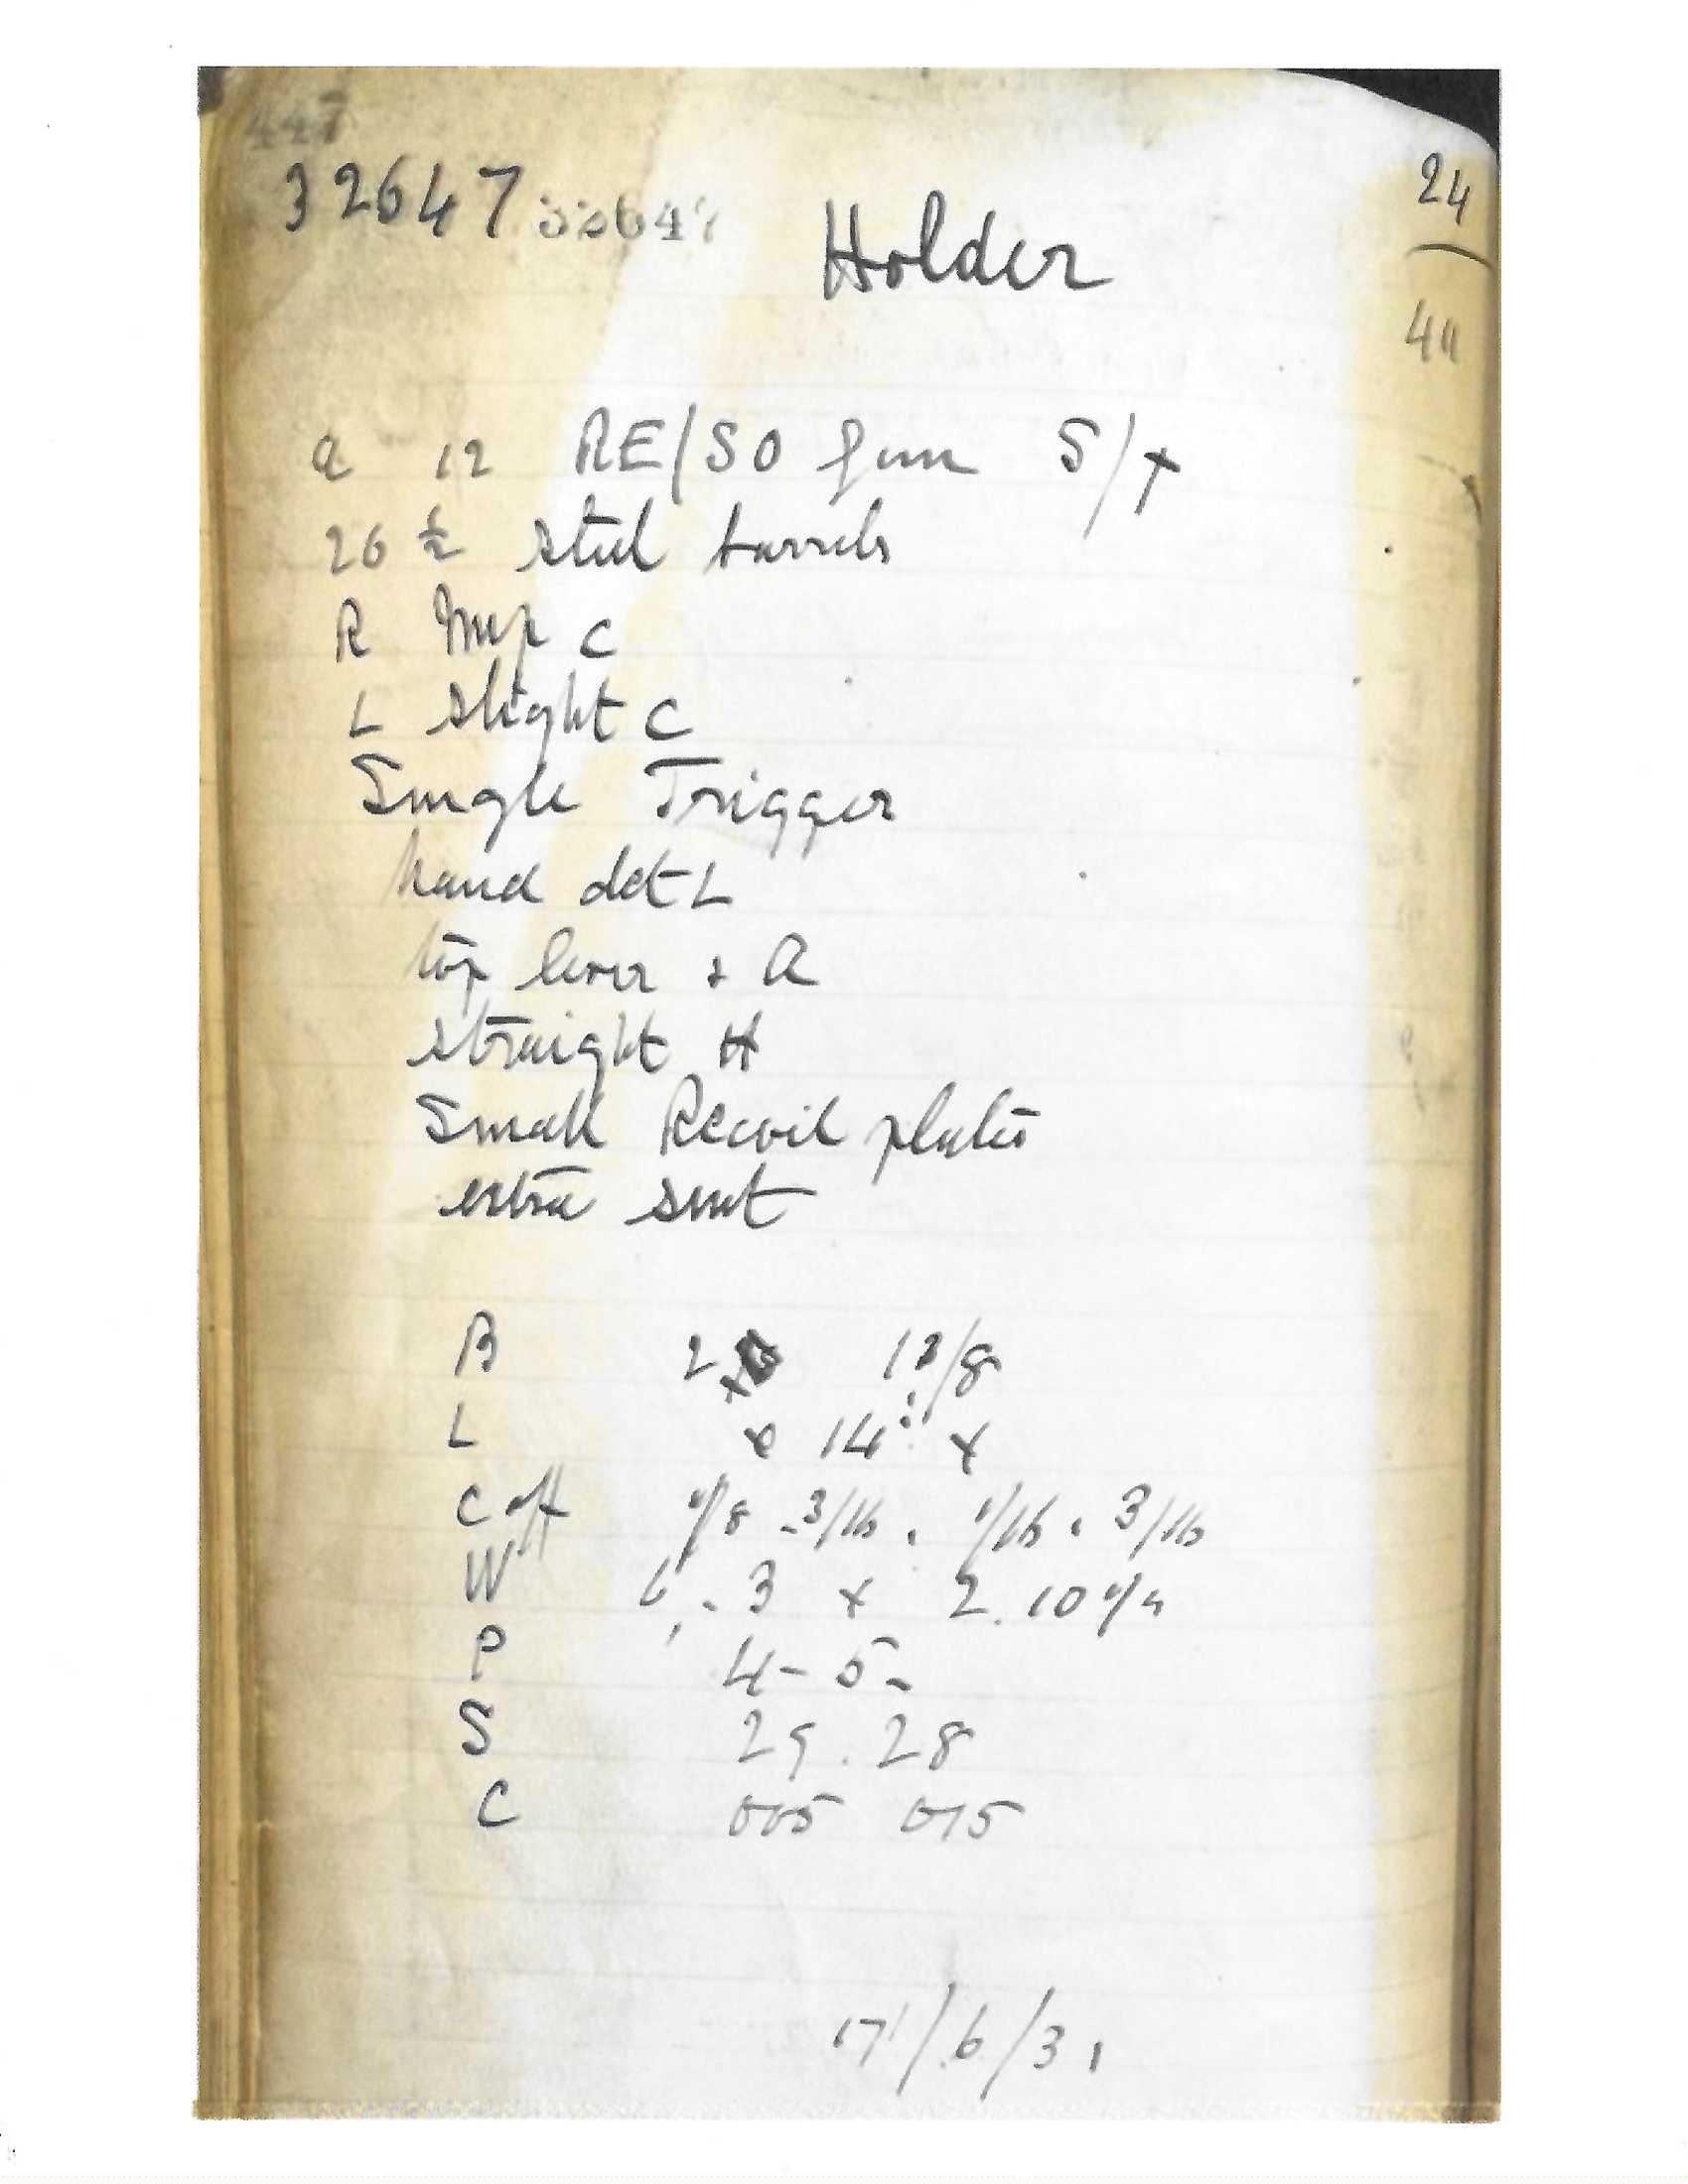 447
32647 32647
24
Holder
4
a 12 RE/SO gun S/T
26 ½ steel barrels
R Imp C
L slight C
Single Trigger
hand det L
top lever & A
straight H
Small Recoil plates
extra
B 2 1 /8
L x 14 x
C off 1/8 - 3/16 . 1/16 . 3/16
W 6 . 3 x 2. 10 1/4
P 4 - 5 -
S 29 . 28
C 005 015
17/6/31